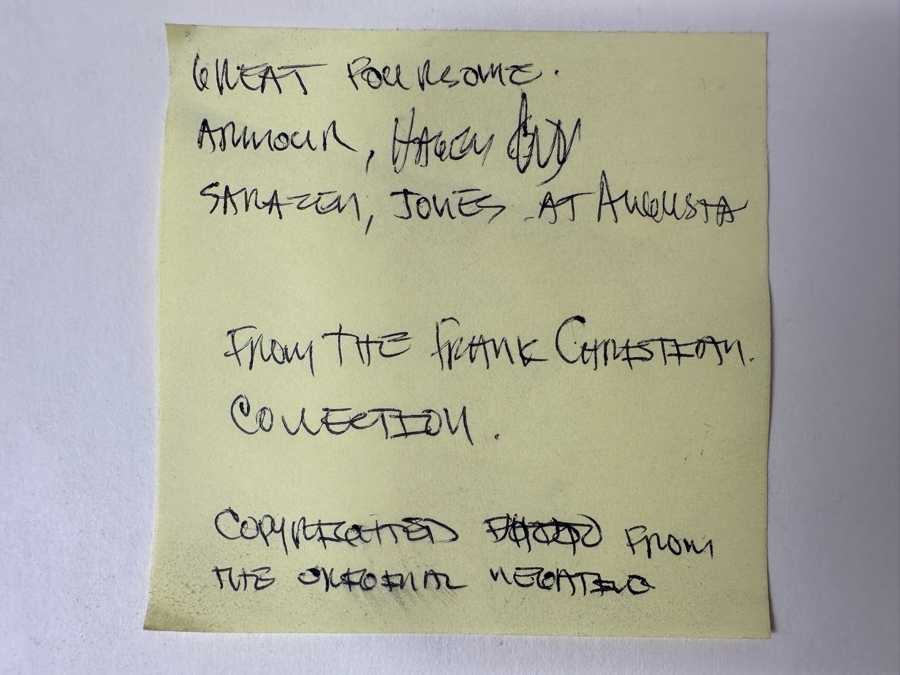 GREAT FOURSOME.
ARMOUR, HAGEN
SARAZEN, JONES AT AUGUSTA
FROM THE FRANK CHRISTIAN.
COLLECTION.
COPYRIGHTED PHOTO FROM
THE ORIGINAL NEGATIVE